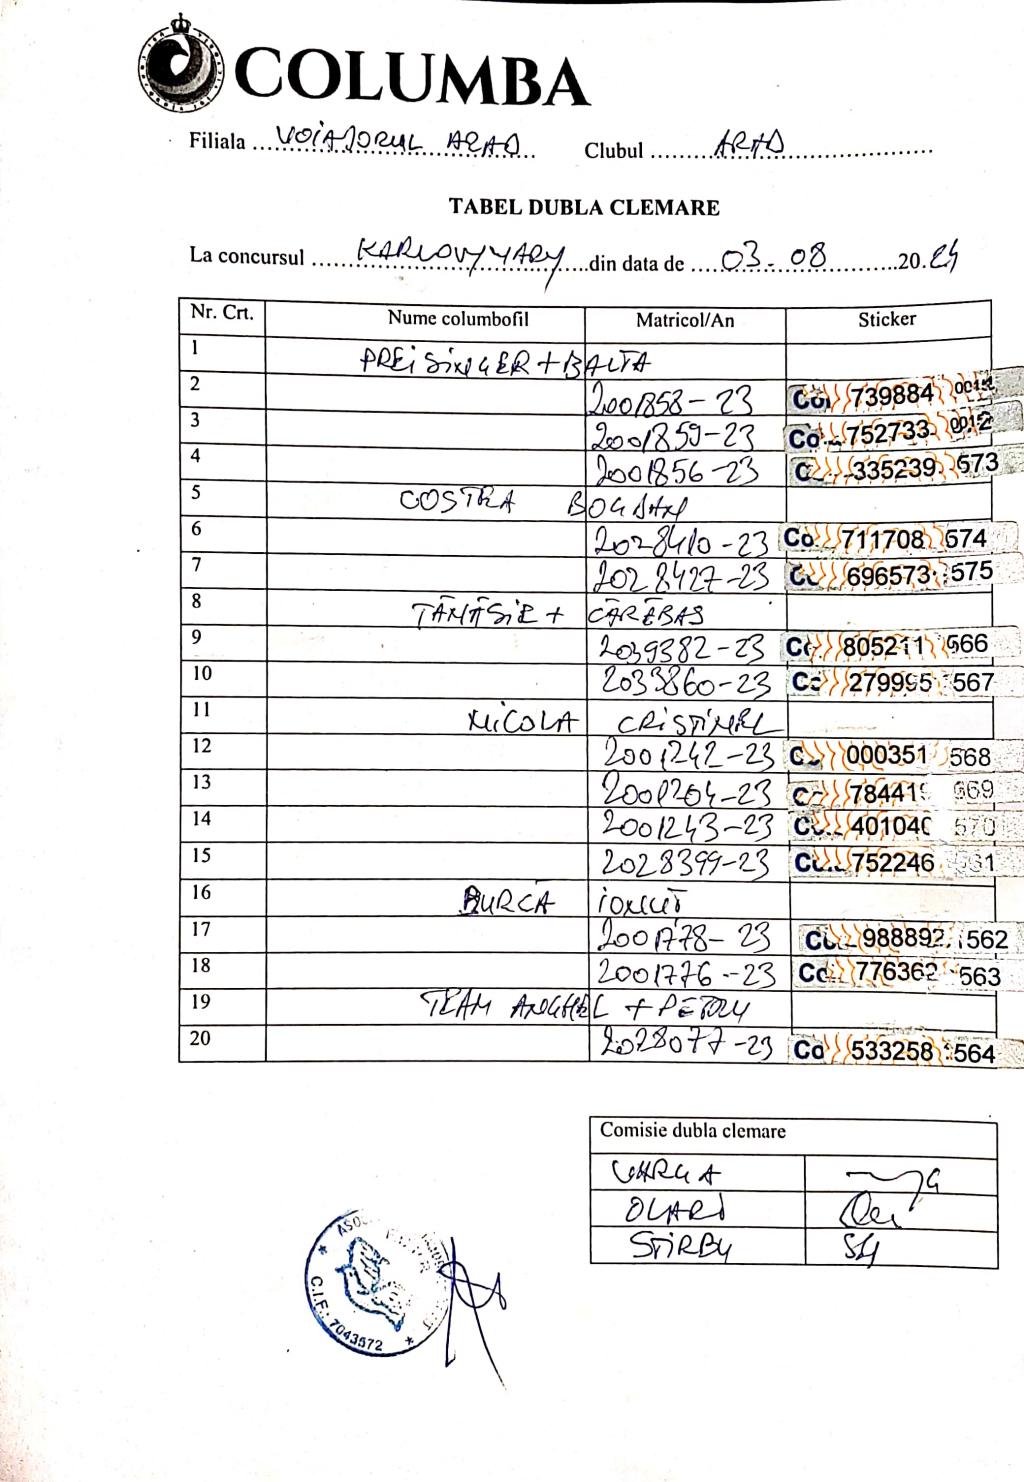 COLUMBA
Filiala VOIAJORUL ARAD Clubul ARAD
TABEL DUBLA CLEMARE
La concursul KARLOVY VARY din data de 03-08 2024
Nr. Crt. Nume columbofil Matricol/An Sticker
1 PREISINGER + BALTA
2 2001858-23 Col 739884 0011
3 2001859-23 Co 752733 0012
4 2001856-23 C 335239 573
5 COSTRA BOGDAN
6 2028410-23 Co 711708 574
7 2028427-23 Co 696573 575
8 TĂNĂSIE + CĂRĂBAS
9 2039382-23 Co 805211 566
10 2033860-23 Co 279995 567
11 NICOLA CRISTINEL
12 2001242-23 Co 000351 568
13 2001204-23 Co 784419 569
14 2001243-23 Co 401040 570
15 2028399-23 Co 752246 561
16 BURCĂ IONUT
17 2001778-23 Co 988892 562
18 2001776-23 Co 776362 563
19 TEAM ANGHEL + PETRU
20 2028077-23 Co 533258 564
Comisie dubla clemare
VARGA
OLARI
STIRBY
C.I.F.: 7043572